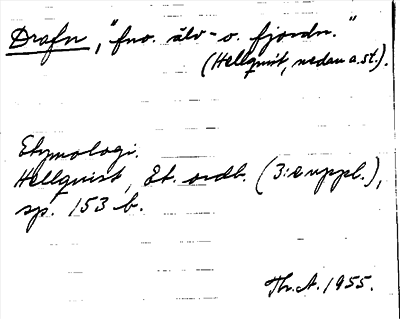 Drafn, "fno. älv- o. fjordn."
(Hellquist, nedan a. st.).
Etymologi.
Hellquist, Et. ordb. (3:e uppl.),
sp. 153 b.
Th. A. 1955.